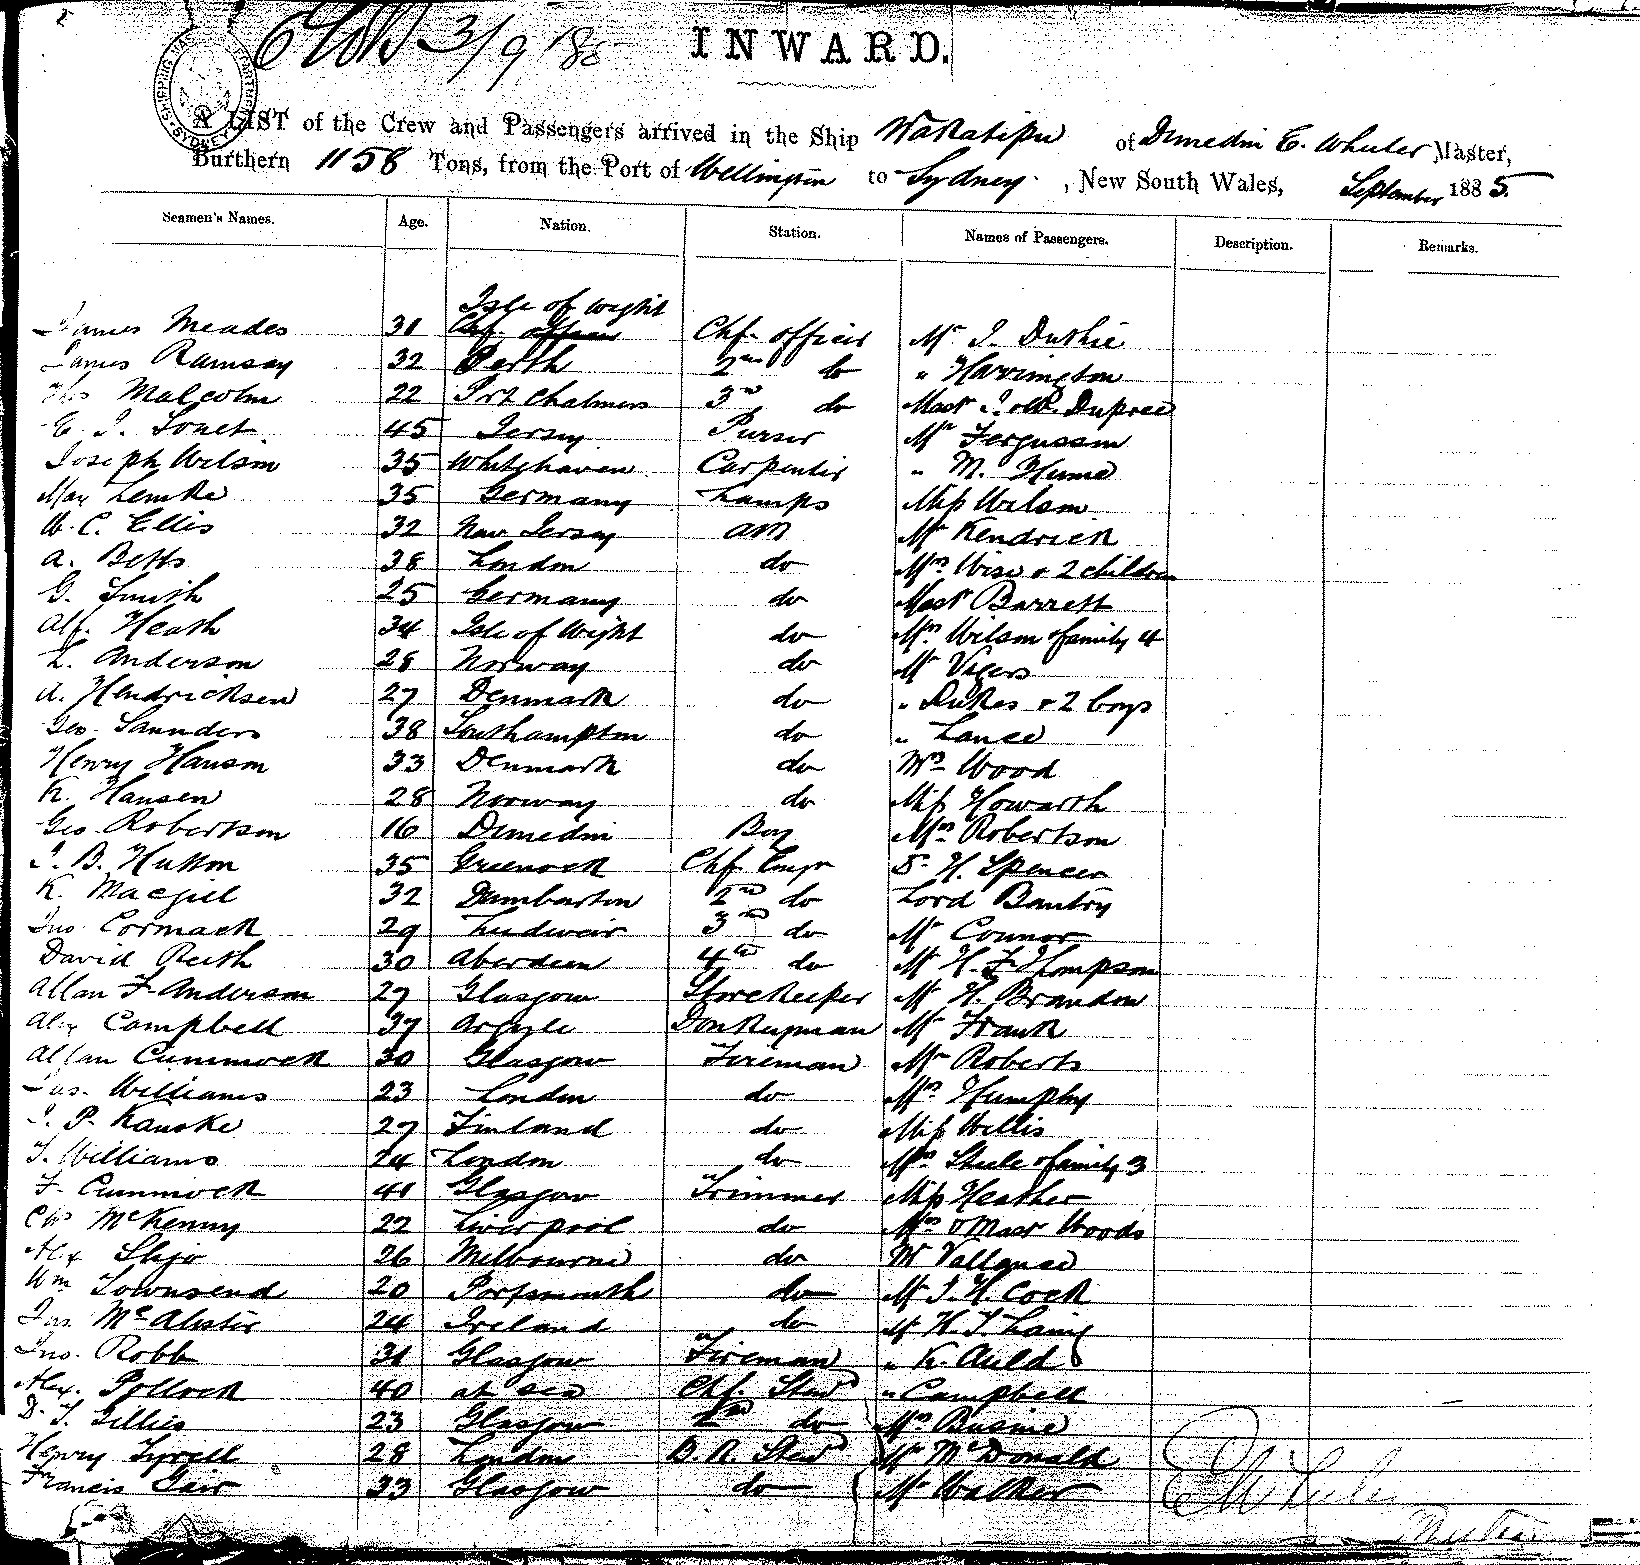 3/9/85 INWARD.
A LIST of the Crew and Passengers arrived in the Ship Wakatipu of Dunedin E. Wheeler Master,
Burthern 1158 Tons, from the Port of Wellington to Sydney, New South Wales, September 1885.
Seamen's Names. Age. Nation. Station. Names of Passengers. Description. Remarks.
Isle of Wight
James Meades 31 Chf. officer Mr J. Duthie
James Ramsay 32 Perth 2nd do " Harrington
Thos Malcolm 22 Port Chalmers 3rd do Mast J. & R. Dupree
E. J. 45 Jersey Purser Mr Fergusson
Joseph Wilson 35 Whitehaven Carpenter " M. Hume
Max Lemke 35 Germany Lamps Miss Wilson
W. C. Ellis 32 New Jersey AB Mr Kendrick
A. Betts 38 London do Mrs Wise & 2 children
G. Smith 25 Germany do Mast Barrett
Alf. Heath 34 Isle of Wight do Mrs Wilson & family 4
L. Anderson 28 Norway do Mr Vigers
A. Hendricksen 27 Denmark do " Dukes & 2 boys
Geo. Saunders 38 Southampton do " Lance
Henry Hanson 33 Denmark do Mrs Wood
K. Hansen 28 Norway do Miss Howarth
Geo. Robertson 16 Dunedin Boy Mrs Robertson
J. B. Hutton 35 Greenock Chf. Engr H. Spencer
K. Macgill 32 Dumbarton 2nd do Lord Bantry
Jno. Cormack 29 3rd do Mr Connor
David Reith 30 Aberdeen 4th do Mr H. F. Thompson
Allan F. Anderson 27 Glasgow Storekeeper Mr H. Brandon
Alex Campbell 37 Argyle Donkeyman Mr Frank
Allan Cummock 30 Glasgow Fireman Mr Roberts
Jas. Williams 23 London do Mrs Humphy
J. P. Kauske 27 Finland do Miss Willis
T. Williams 24 London do Mrs Steele & family 3
F. Cummock 41 Glasgow Trimmer Miss Heather
Chs McKenny 22 Liverpool do Mrs & Mast Woods
Alex Sligo 26 Melbourne do Mr Vallance
Wm Townsend 20 Portsmouth do Mr J. H. Cock
Jas. McAlister 24 Ireland do Mr H. T. Laing
Jno. Robb 31 Glasgow Fireman " K. Auld
Alex. Pollock 40 at sea Chf. Stewd " Campbell
D. T. Gillies 23 Glasgow 2nd do Mrs Busine
Henry Tyrell 28 London B. R. Stewd Mr McDonald
Francis Gair 33 Glasgow do Mr Walker
E Wheeler
Master